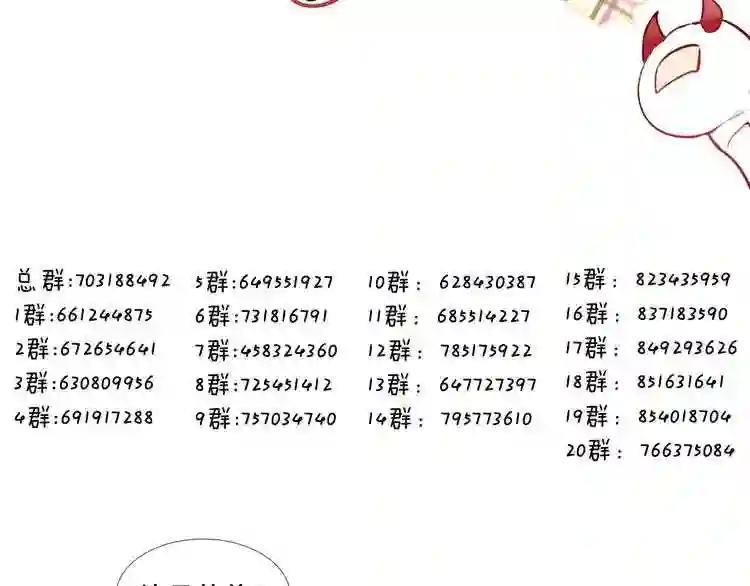 总群:703188492
1群:661244875
2群:672654641
3群:630809956
4群:691917288
5群:649551927
6群:731816791
7群:458324360
8群:725451412
9群:757034740
10群: 628430387
11群: 685514227
12群: 785175922
13群: 647727397
14群: 795773610
15群: 823435959
16群: 837183590
17群: 849293626
18群: 851631641
19群: 854018704
20群: 766375084